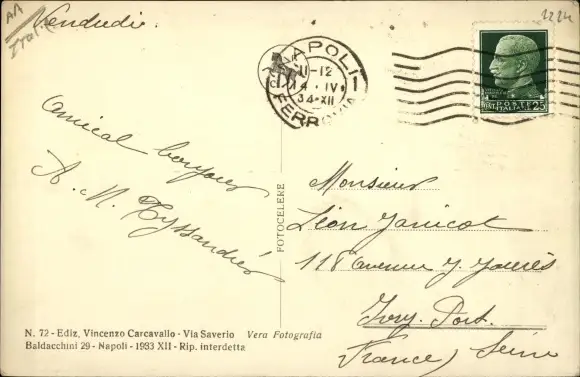 AA
Ital
Vendredi.
222
NAPOLI
11-12
14 . IV
34-XII
FERROVIA
POSTE ITALIANE 25
Amical bonjour
A. M. Tyssandier
FOTOCELERE
Monsieur
Léon Janicot
118 avenue J. Jaurès
Ivry. Port.
(France) Seine
N. 72 - Ediz. Vincenzo Carcavallo - Via Saverio Vera Fotografia
Baldacchini 29 - Napoli - 1933 XII - Rip. interdetta